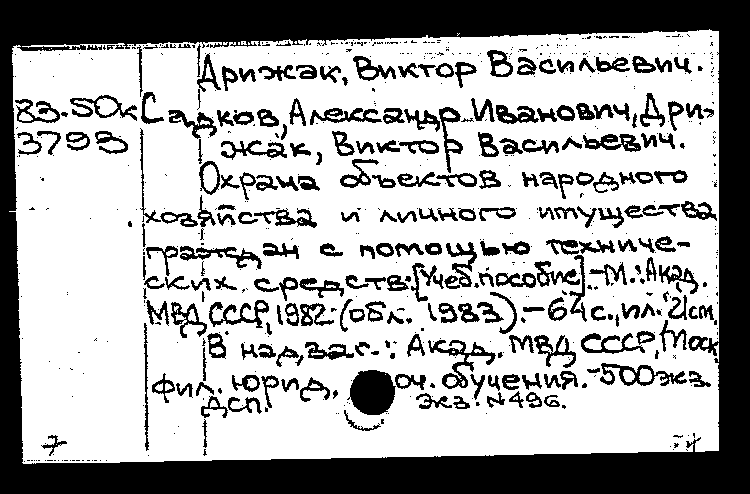 Дрижак, Виктор Васильевич.
83.50к Садков, Александр Иванович, Дри-
3793 жак, Виктор Васильевич.
Охрана объектов народного
хозяйства и личного имущества
граждан с помощью техниче-
ских средств: [Учеб. пособие]. - М.: Акад.
МВД СССР, 1982 (обл. 1983). - 64 с., ил.; 21 см.
В надзаг.: Акад. МВД СССР, Моск.
фил. юрид. оч. обучения. - 500 экз.
ДСП. Экз. N 496.